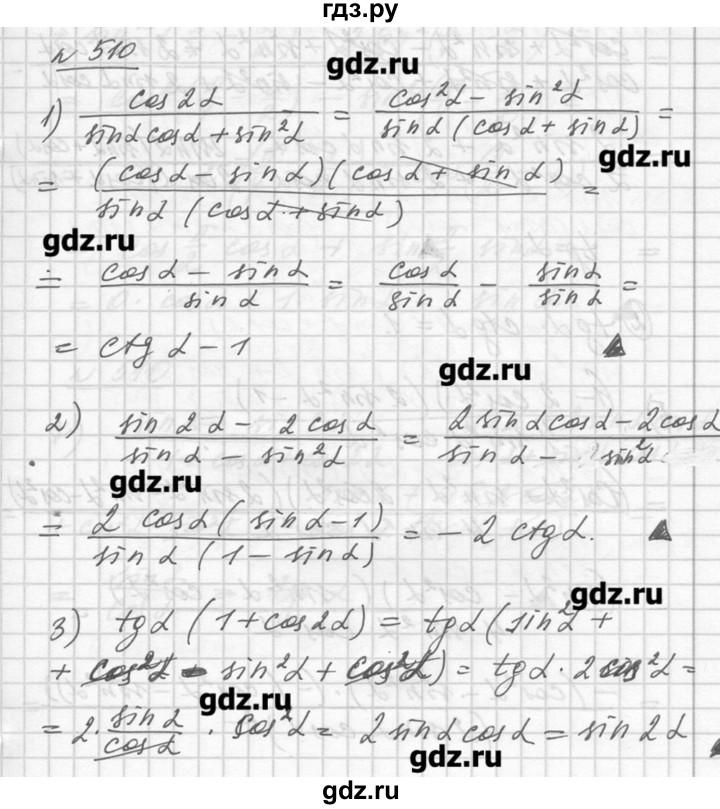 гдз.ру
№ 510
gdz.ru
1) cos2α / (sinα cosα + sin²α) = (cos²α − sin²α) / (sinα (cosα + sinα)) =
gdz.ru
= (cosα − sinα)(cosα + sinα) / (sinα (cosα + sinα)) =
gdz.ru
= (cosα − sinα) / sinα = cosα / sinα − sinα / sinα =
= ctgα − 1
gdz.ru
2) (sin2α − 2cosα) / (sinα − sin²α) = (2sinαcosα − 2cosα) / (sinα − sin²α)
gdz.ru
= 2cosα(sinα−1) / (sinα(1−sinα)) = −2ctgα.
gdz.ru
3) tgα(1+cos2α) = tgα(sin²α +
+ cos²α − sin²α + cos²α) = tgα · 2cos²α =
gdz.ru
= 2 · sinα / cosα · cos²α = 2sinαcosα = sin2α
gdz.ru
gdz.ru